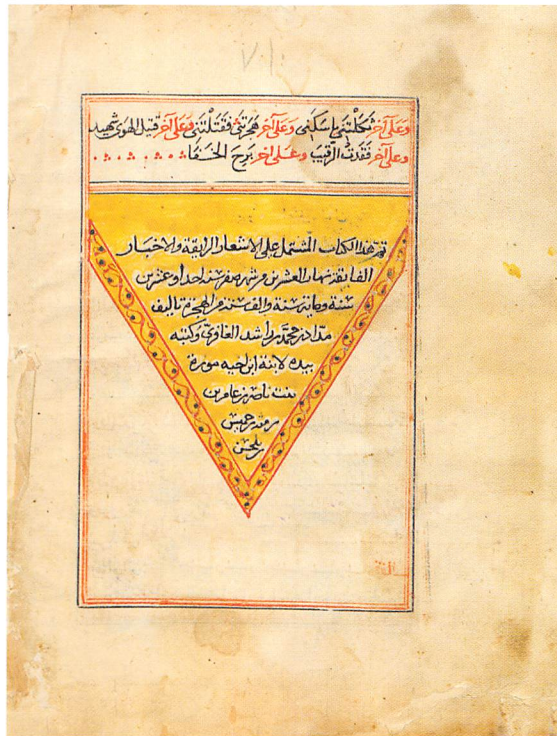 وعلى آخر شكلتني يا سكني وعلى آخر هجرتني فقتلتني وعلى آخر قتيل الهوى شهيد
وعلى آخر فقدت الرقيب وعلى آخر برح الخفا
تم هذا الكتاب المشتمل على الاشعار الرايقة والاخبار
الفايقة نهار العشرين من شهر صفر سنة احدا وعشرين
سنة ومايتي سنة والف سنة من الهجرة تاليف
مداد بن محمد بن راشد الغاوي وكتبه
بيده لابنة ابن اخيه موزة
بنت ناصر بن عامر بن
خميس